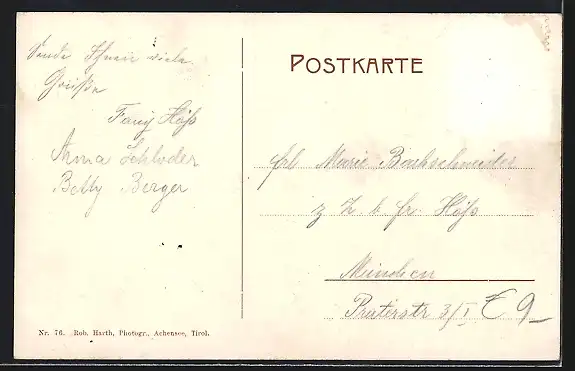 Sende Ihnen viele
Grüße
Fany Höß
Anna Schloder
Betty Berger
POSTKARTE
Frl Marie Bachschneider
z Z. b. fr. Höß
München
Pruterstr 3/I € 9_
Nr. 76. Rob. Harth, Photogr., Achensee, Tirol.